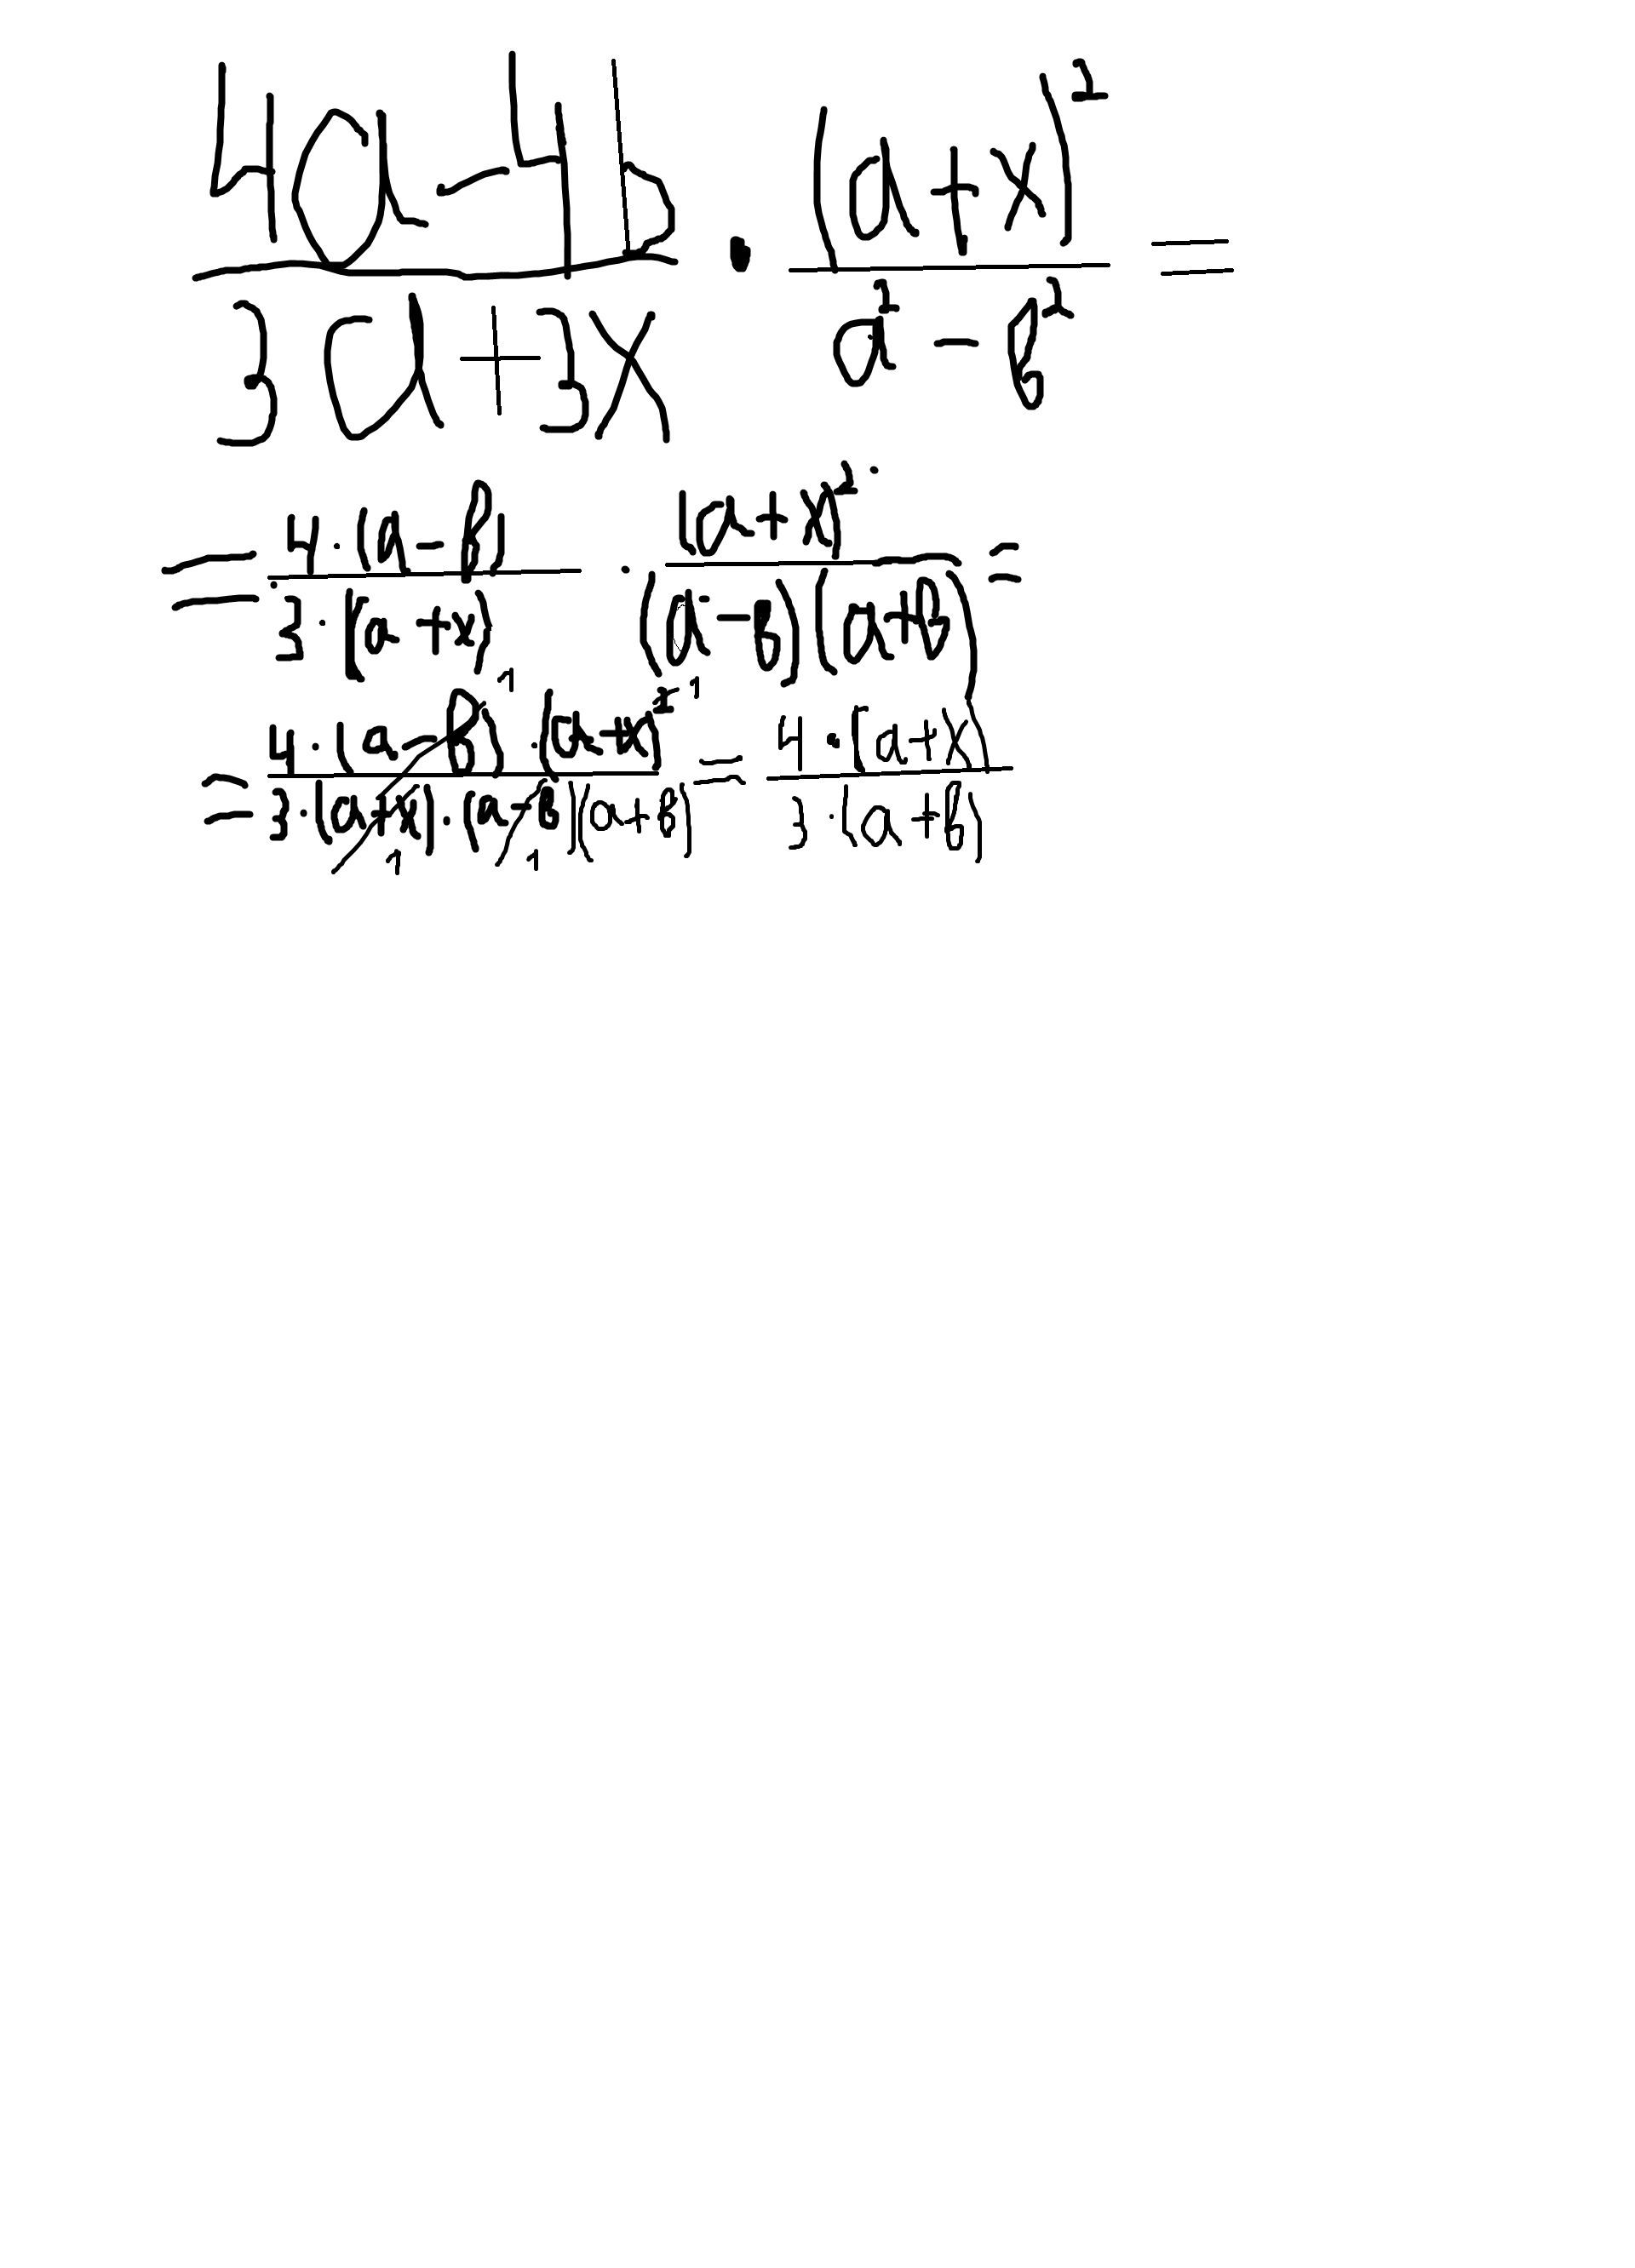 (4a-4b)/(3a+3x) · (a+x)²/(a²-b²) =
= 4·(a-b)/3·(a+x) · (a+x)²/(a-b)(a+b) =
= 4·(a-b)¹·(a+x)²¹/3·(a+x)₁·(a-b)₁(a+b) = 4·(a+x)/3·(a+b)